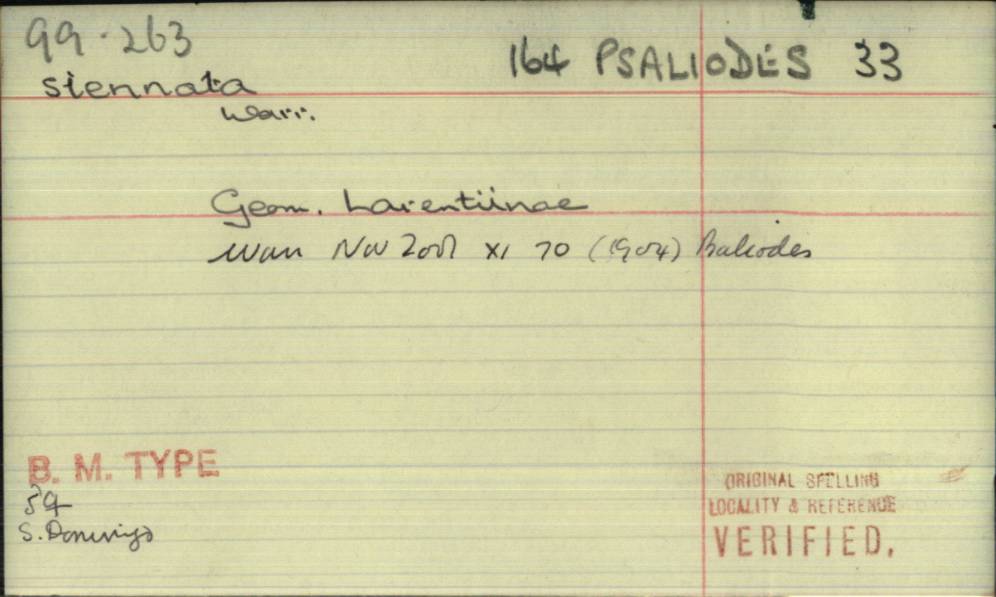 99.263
164 PSALIODES 33
siennata
Warr.
Geom. Larentiinae
Warr Nov Zool XI 70 (1904) Psaliodes
B. M. TYPE
♀
S. Domingo
ORIGINAL SPELLING
LOCALITY & REFERENCE
VERIFIED.